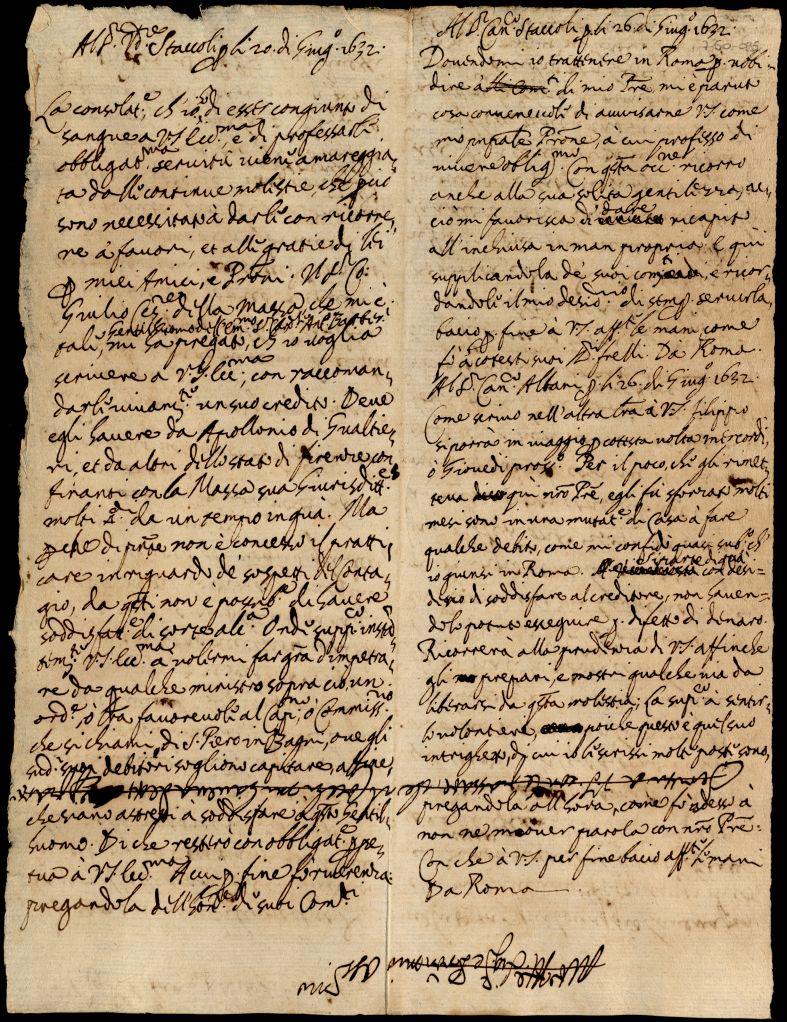 Al S.r P.re Staccoli p li 20. di Giug.o 1632.
La consolat.e, ch'io ò di esser congiunto di
sangue a V.S. Ecc.ma e di professarli
obbligat.ma servitù vien' amareggia,
ta dalle continue molestie che
sono necessitato à darli con ricorre,
re à favori, et alle gratie di lei
p miei Amici, e Proni. Il S.r Co:
Giulio Ces.re della Massa, che mi è
tali, mi ha pregato, ch'io voglia
scrivere a V.S. Ecc.ma, con raccoman,
darli vivam.te un suo credito. Deve
egli havere da Apollonio di Gualtie,
ri, et da altri dello stato di firenze con,
finanti con la Massa sua Giurisditt.e
molti da un tempo in quà. Ma
pche di pnte non è concesso il pratti,
care in riguardo de' sospetti del Conta,
gio, da qsti non è possib.e di havere
soddisfat.e di sorte alc.a. Onde supp.co instan,
tem.te V.S. Ecc.ma à volermi far gra d'impetra,
re da qualche ministro sopra ciò, un
ord.e, ò lra favorevole al Cap.no, ò Commiss.rio
che si chiami di S. Piero in Bagni, ove gli
sud.i debitori sogliono capitare,
che siano astretti à soddisfare à qsto Gentil,
huomo. Di che resterò con obbligat.e ppe,
tua à V.S. Ecc.ma. A cui p. fine fò riverenza
pregandola dell'hon.re di suoi Com.di
Al S.r Can.co Staccoli p li 26. di Giug.o 1632.
Dovendomi io trattenere in Roma p. ubi,
dire à di mio Pre, mi è paruto
cosa convenevole di avvisarne V.S. come
mio pnpale Prone, à cui professo di
vivere oblig.mo. Con qsta occ.ne ricorro
anche alla sua solita gentilezza, ac,
ciò mi favorisca di dare ricapito
all'inchiusa in man propria. E qui
supplicandola de' suoi comandi, e ricor,
dandole il mio desid.rio di semp. servirla,
bacio p. fine à V.S. aff.te le mani, come
fò à cotesti suoi S.ri frelli. Da Roma.
Al S.r Can.co Altani p li 26. di Giug.o 1632.
Come scrivo nell'altra lra à V.S. filippo
si porrà in viaggio p cotesta volta mercordì,
ò Giovedì pross.o. Per il poco, che gli rimet,
teva quì nro Pre, egli fù sforzato molti
mesi sono in una mutat.e di Casa à fare
qualche debito, come mi confidò quasi sub.o ch'
io giunsi in Roma. con desi=
derio di soddisfare al creditore, non haven=
dolo potuto esseguire p. difetto di denaro.
Ricorrerà alla prudenza di V.S. affinche
gli prepari, e mostri qualche via da
liberarsi da qsta molestia; La supp.co à sentir,
lo volontiere, poiche questo è quel suo
intrighetto, di cui io le scrissi molte poste sono,
pregandola all'hora, come fò adesso à
non ne muover parola con nro Pre.
Con che à V.S. per fine bacio aff.te le mani
Da Roma